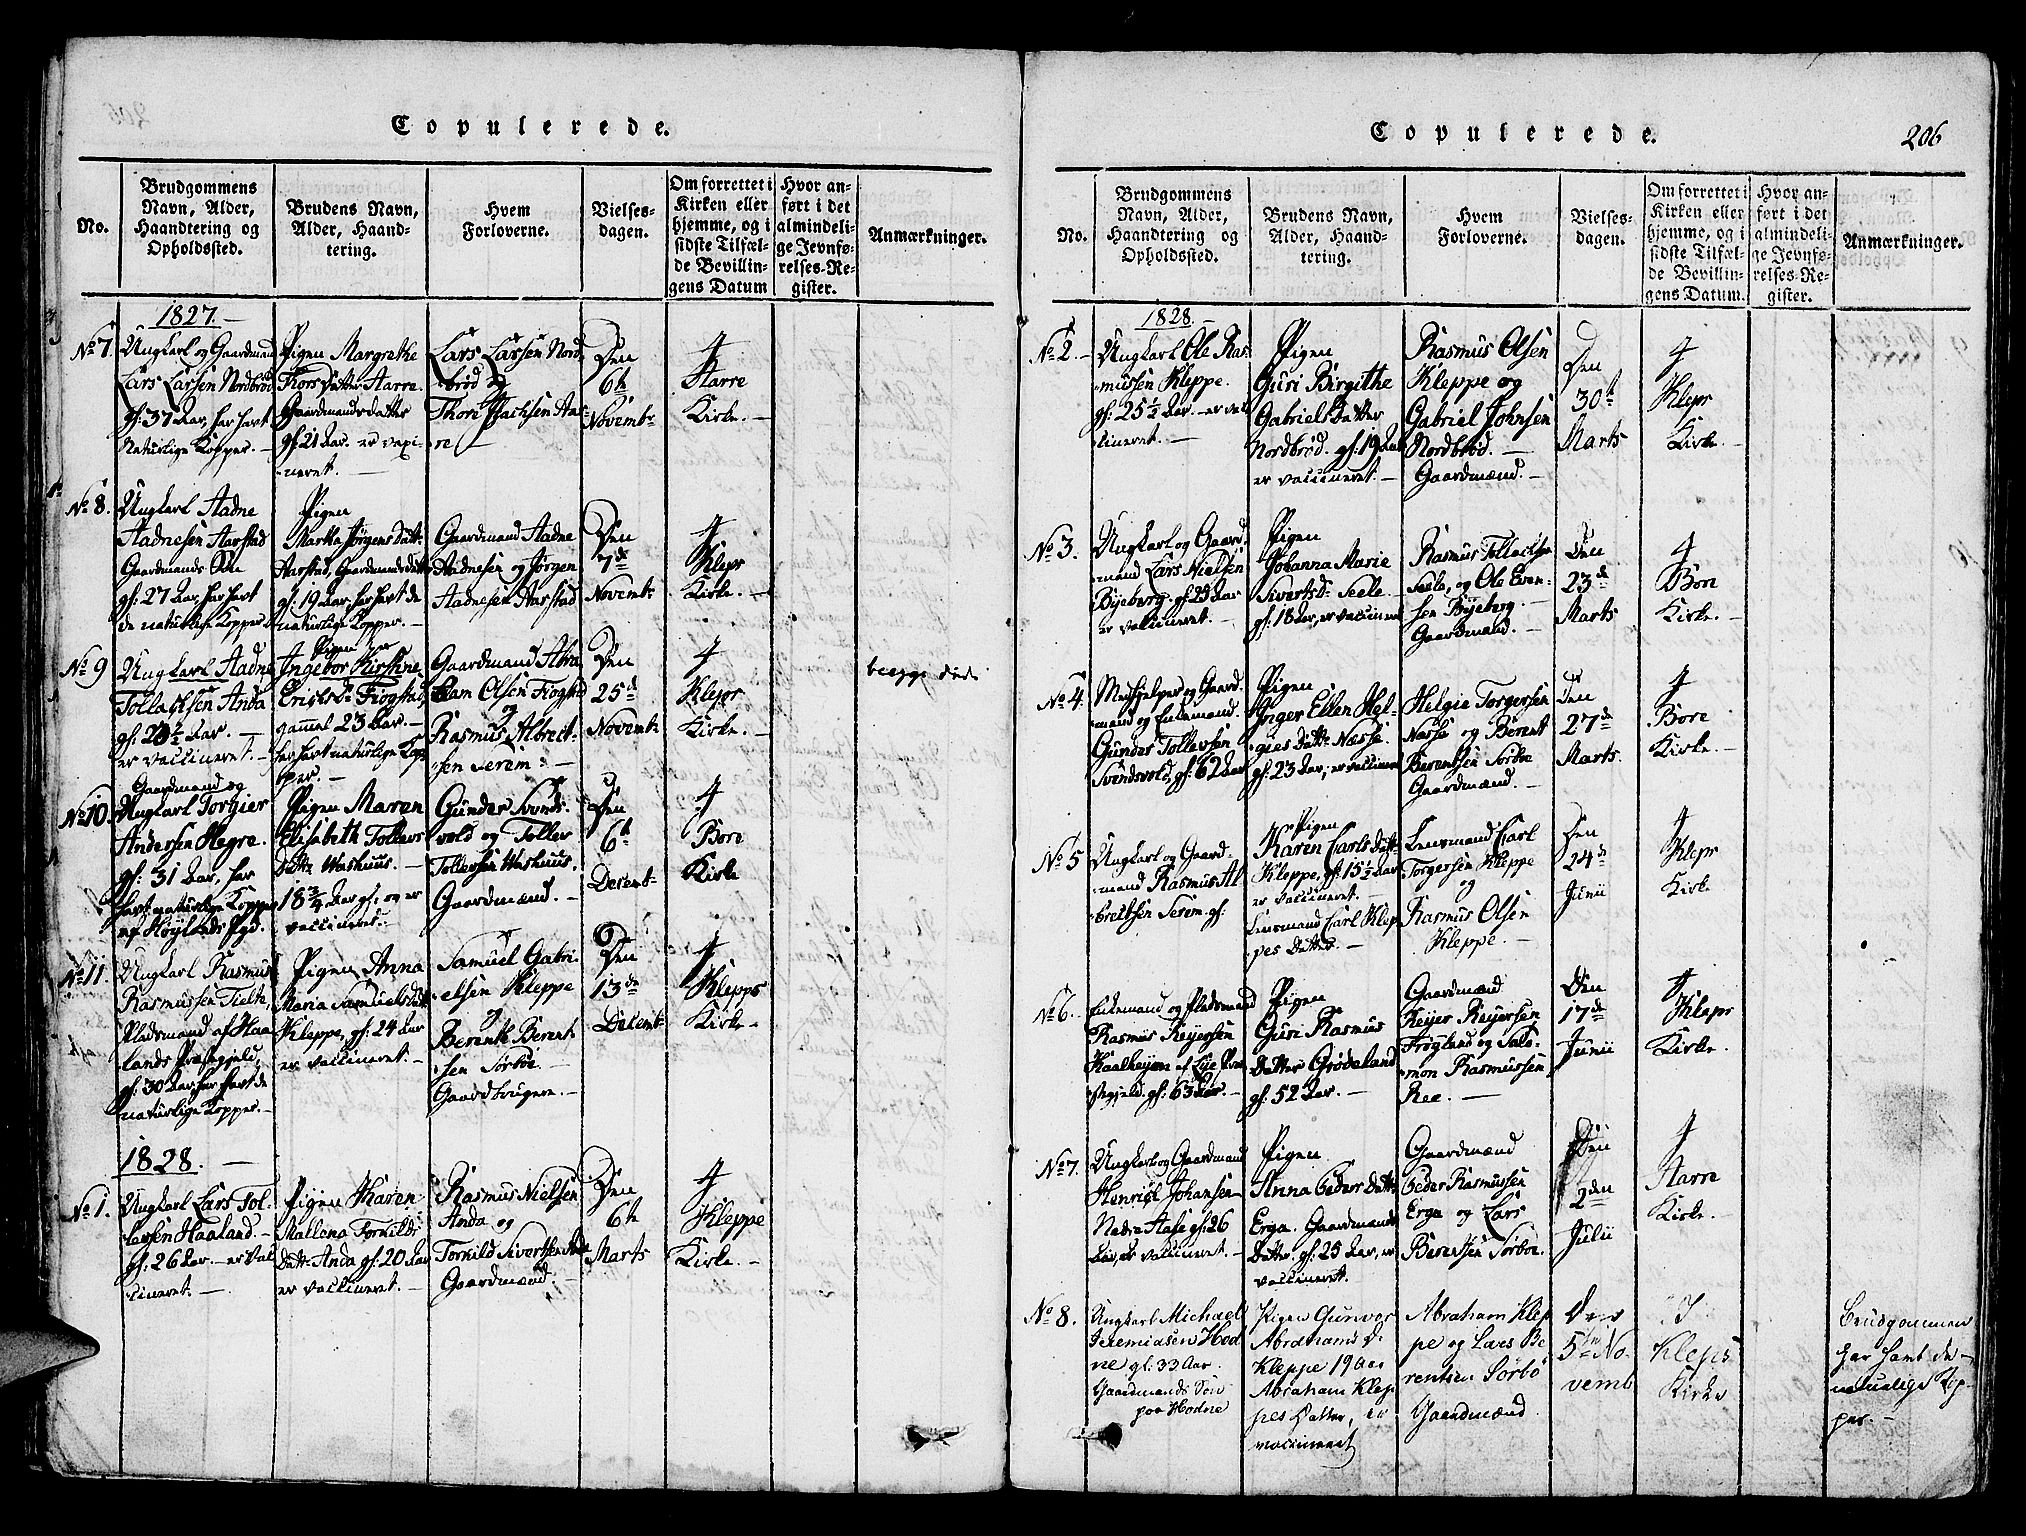 Copulerede.
No.
Brudgommens
Navn, Alder,
Haandtering og
Opholdssted.
Brudens Navn,
Alder, Haand-
tering.
Hvem
Forloverne.
Vielses-
dagen.
Om forrettet i
Kirken eller
hjemme, og i
sidste Tilfæl-
de Bevillin-
gens Datum
Hvor an-
ført i det
almindeli-
ge Jevnfø-
relses-Re-
gister.
Anmærkninger.
1827.
No 7.
Ungkarl og Gaardmand
Lars Larsen Nordbrød
gl: 37 Aar, har havt
Naturlige Kopper. -
Pigen Margrethe
Thors Datter Aarre.
Gaardmandsdatter
gl: 21 Aar. er vaxi-
neret. -
Lars Larsen Nord-
brød og
Thore Isachsen Aar-
re
Den
6te
Novembr
I
Aarre
Kirke. -
No 8.
Ungkarl Aadne
Aadnesen Aarstad
Gaardmands Søn
gl: 27 Aar, har havt
de naturlige Kopper.
Pigen
Martha Jørgens Datt-
Aarstad, Gaardmandsdatter
gl: 19 Aar, har havt de
naturlige Kopper. -
Gaardmænd Aadne
Aadnesen og Jørgen
Aadnesen Aarstad
Den
7de
Novembr
I
Klepr
Kirke. -
No 9
Ungkarl Aadne
Tollachsen Anda
gl: 23½ Aar. -
er vaccineret. -
Pigen
Ingebor Kirstine
Erichsdr Frogstad,
gammel 23 Aar. -
har havt naturlige Kop-
per. -
Gaardmænd Abra
ham Olsen Frogstad
og
Rasmus Albrect-
sen Serem. -
Den
25de
Novembr
I
Klepr
Kirke. -
begge døde
No 10.
Gaardmand og
Ungkarl Torgier
Andersen Hegre.
gl: 31 Aar, har
havt naturlige Kopper
af Høylands Pgd.
Pigen Maren
Elisabeth Tollevs
Datter Washuus. -
18¾ Aar gl. og er
vaccineret. -
Gunder Svends-
vold og Tollev
Tollevsen Washuus,
Gaardmænd. -
Den
6te
Decemb-
I
Bore
Kirke
No 11.
Ungkarl Rasmus
Rasmussen Tielte,
Pladsmand af Haa-
lands Præstegjeld,
gl: 30 Aar, har havt de
naturlige Kopper. -
Pigen Anna
Maria Samuelsdatt-
Kleppe, gl: 24 Aar
er vaccineret. -
Samuel Gabri-
elsen Kleppe
og
Berente Berent-
sen Sørbøe. -
Gaardbrugere. -
Den
13de
Decemb-
I
Klepps
Kirke. -
1828. -
No 1.
Ungkarl Lars Tol-
lavsen Haaland. -
gl: 26 Aar. - er vac
cineret. -
Pigen Karen
Mallena Torkilds
Datt- Anda gl: 20 Aar
er vaccineret. -
Rasmus Nielsen
Anda og
Torkild Sivertsen Anda
Gaardmænd. -
Den
6te
Marts
I
Kleppe
Kirke. -
Copulerede.
206
No.
Brudgommens
Navn, Alder,
Haandtering og
Opholdssted.
Brudens Navn,
Alder, Haand-
tering.
Hvem
Forloverne.
Vielses-
dagen.
Om forrettet i
Kirken eller
hjemme, og i
sidste Tilfæl-
de Bevillin-
gens Datum.
Hvor an-
ført i det
almindeli-
ge Jevnfø-
relses-Re-
gister.
Anmærkninger.
1828. -
No 2. -
Ungkarl Ole Ras-
mussen Kleppe.
gl: 25½ Aar. - er vac
cineret. -
Pigen
Guri Birgithe
Gabriels Datter
Nordbrød. gl: 19 Aar
er vaccineret. -
Rasmus Olsen
Kleppe og
Gabriel Johnsen
Nordbrød. -
Gaardmænd. -
Den
30te
Marts
I
Klepr
Kirke. -
No 3.
Ungkarl og Gaard-
mand Lars Nielsen
Byeberg. gl: 23 Aar
er vaccineret. -
Pigen
Johanna Marie
Sivertsdr Seele.
gl: 18 Aar, er vaccineret
Rasmus Tollachsen
Seele, og Ole Even-
sen Byeberg. -
Gaardmænd. -
Den
23de
Marts
I
Bore
Kirke. -
No 4.
Medhjelper og Gaard-
mand og Enkemand.
Gunder Tollevsen
Svendsvold, gl: 62 Aar
Pigen
Inger Ellen Hel-
gies Datt- Næsse.
gl: 23 Aar, er vaccineret
Helgie Torgersen
Næsse og Berent
Berentsen Sørbøe
Gaardmænd. -
Den
27de
Marts.
I
Bore
Kirke. -
No 5
Ungkarl og Gaard-
mand Rasmus Al-
brectsen Serem. gl:
Pigen
Karen Carls Datt-
Kleppe, gl: 15½ Aar
er vaccineret. -
Lensmand Carl Klep-
pes Datter. -
Lensmand Carl
Torgersen Kleppe
og
Rasmus Olsen
Kleppe. -
Den
24de
Junii
I
Klepr
Kirke
No 6. -
Enkemand og Pladsmand
Rasmus Reyersen
Kaalheyen af Lye Præ-
stegjeld. gl: 63 Aar. -
Pigen
Guri Rasmus
Datter Grødeland
gl: 52 Aar. -
Gaardmænd
Reyer Reyersen
Frøgland og Salo-
mon Rasmussen
Ree. -
Den
17de
Junii
I
Klepr
Kirke. -
No 7.
Ungkarl og Gaardmand
Henrich Johansen
Nedre Aase gl: 26
Aar, er vaccineret. -
Pigen
Anna Peders Datt-
Erga. Gaardmands
Datter. gl: 25 Aar, er
vaccineret.
Gaardmænd
Peder Rasmussen
Erga og Lars
Berentsen Sørbøe.
Den
2den
Julii
I
Aarre
Kirke. -
No 8.
Ungkarl Michael
Jeremiasen Hod
ne gl. 33 Aar.
Gaardmands Søn
paa Hodne
Pigen Gunvor
Abrahams D.
Kleppe 19 Aar
Abraham Klep
pes Datter, er
vaccineret
Abraham Klep
pe og Lars Be
rentsen Sørbø
Gaardmænd
Den
5te No-
vemb
I
Kleps
Kirke
Brudgommen
har havt de
naturlige Kop-
per. -